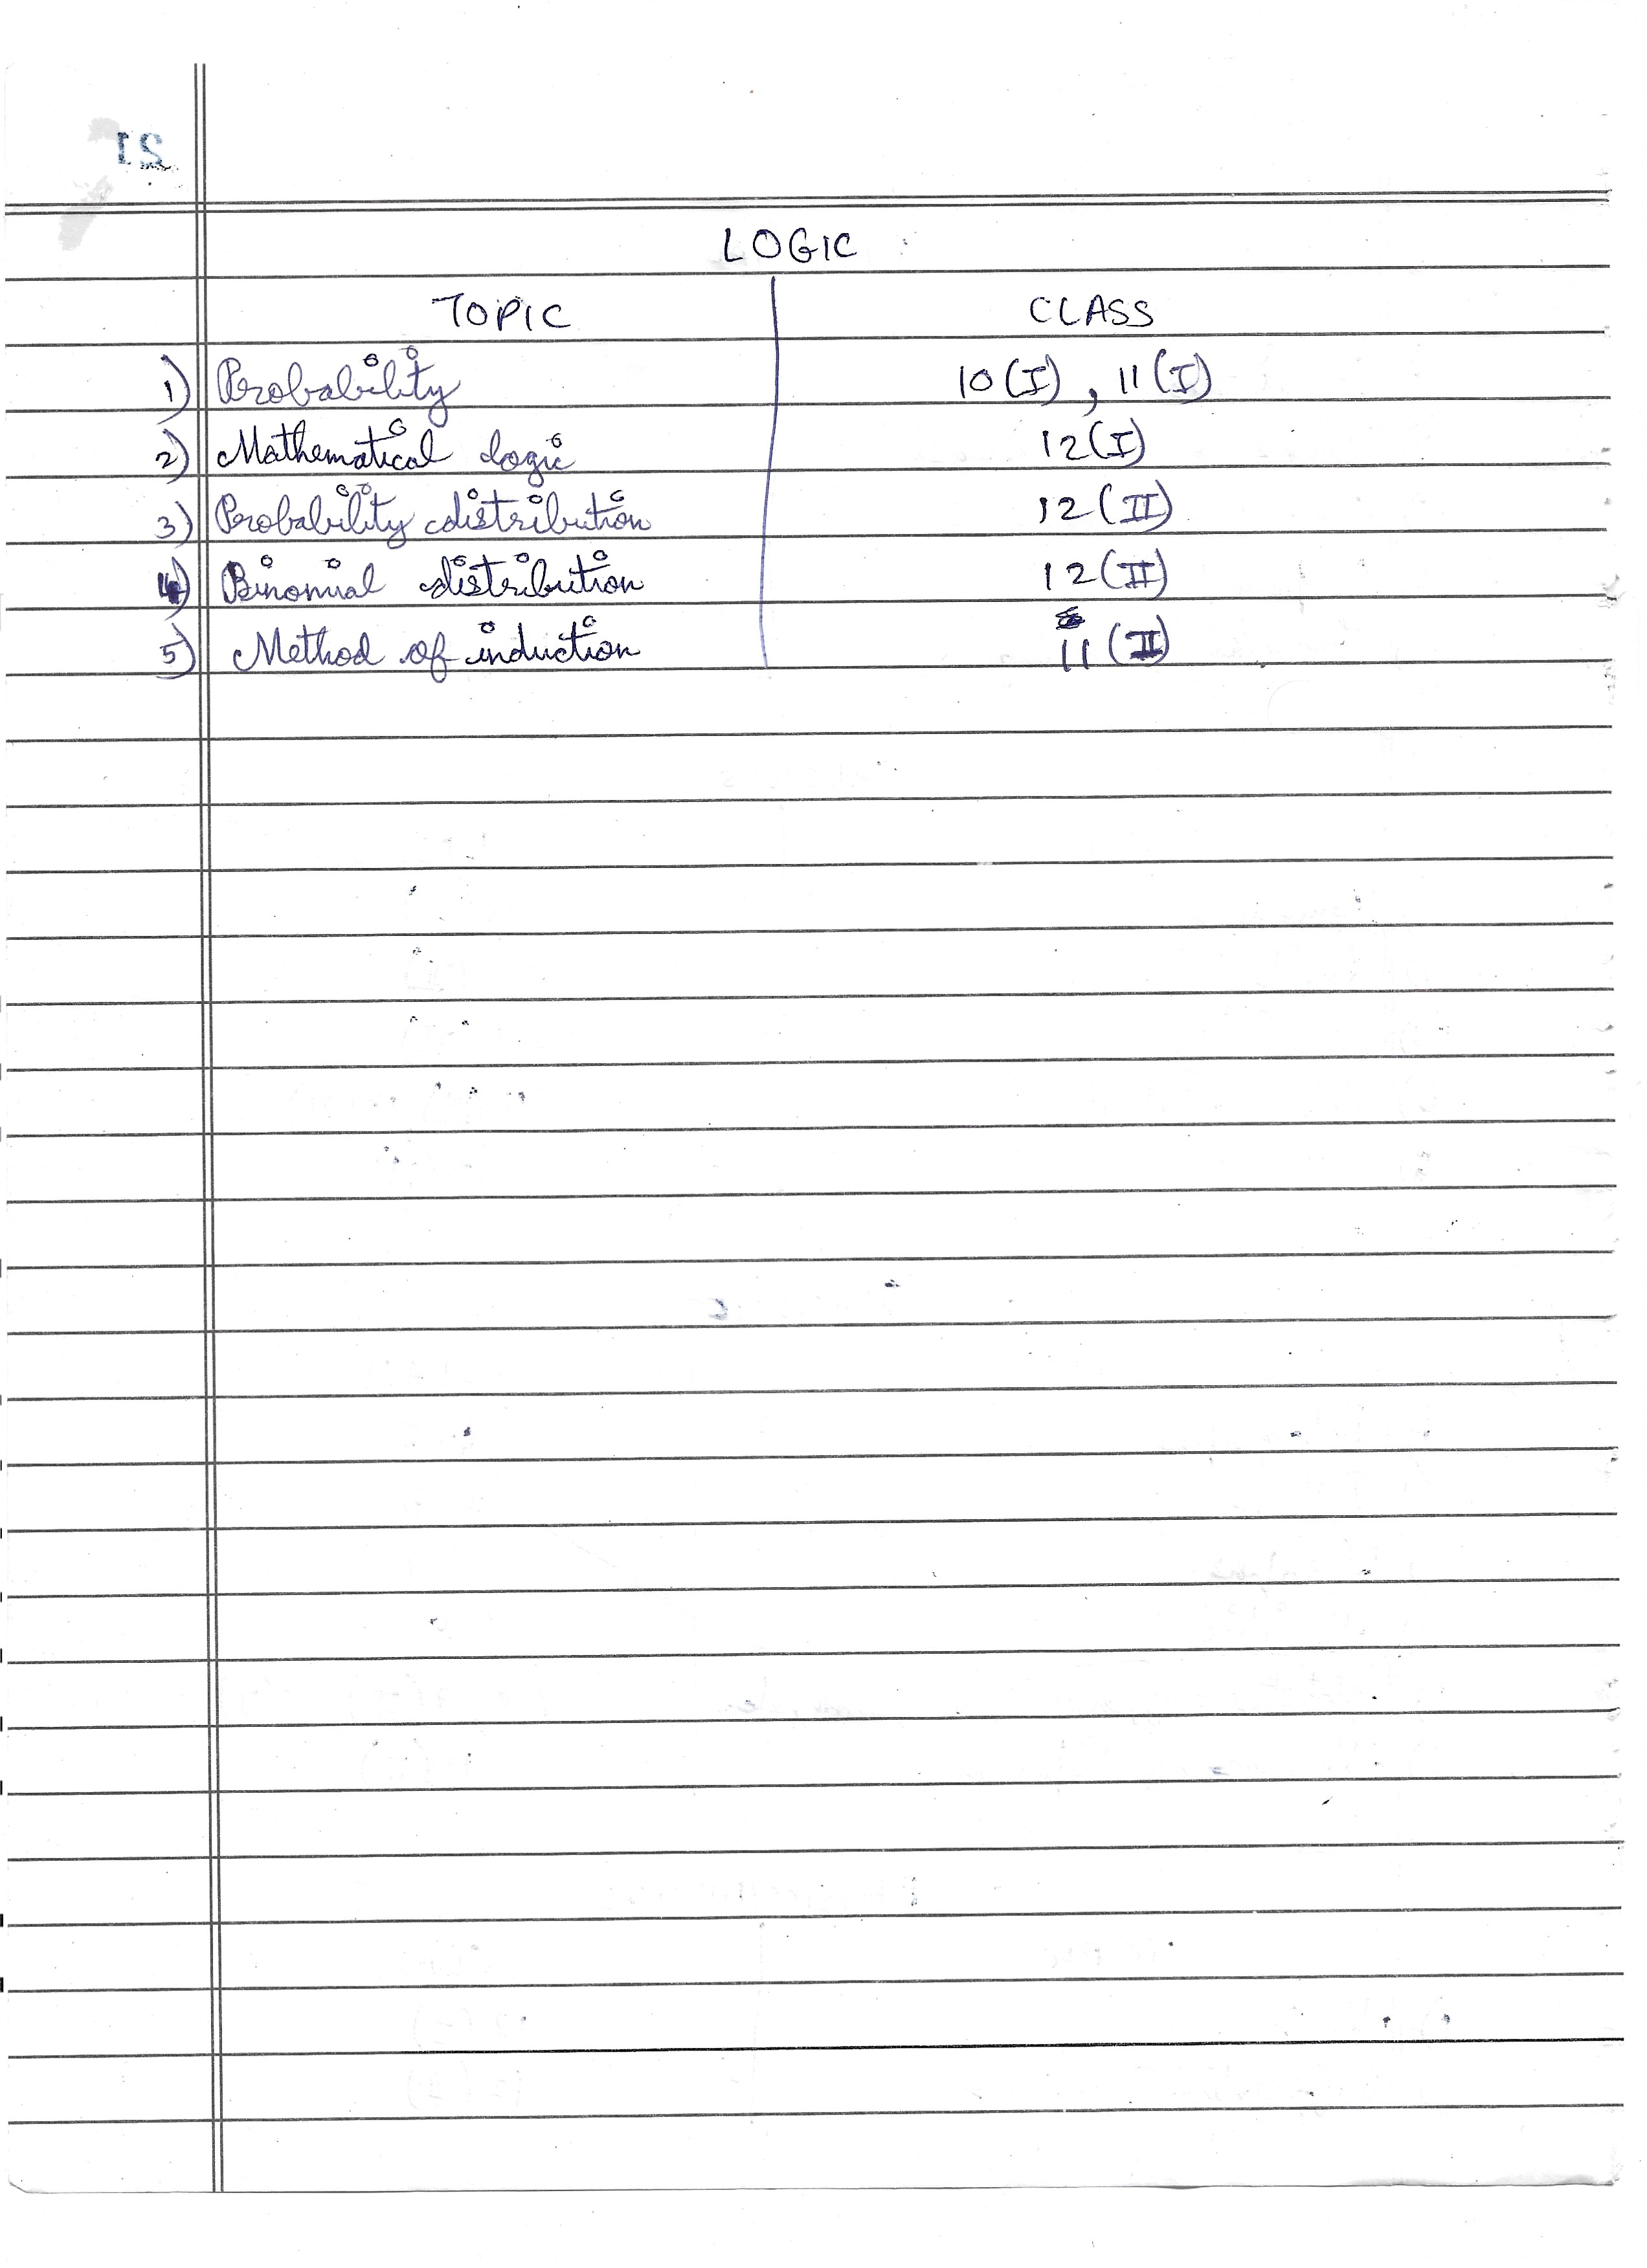 LOGIC
TOPIC CLASS
1) Probability 10(I), 11(I)
2) Mathematical logic 12(I)
3) Probability distribution 12(II)
4) Binomial distribution 12(II)
5) Method of induction 11(II)